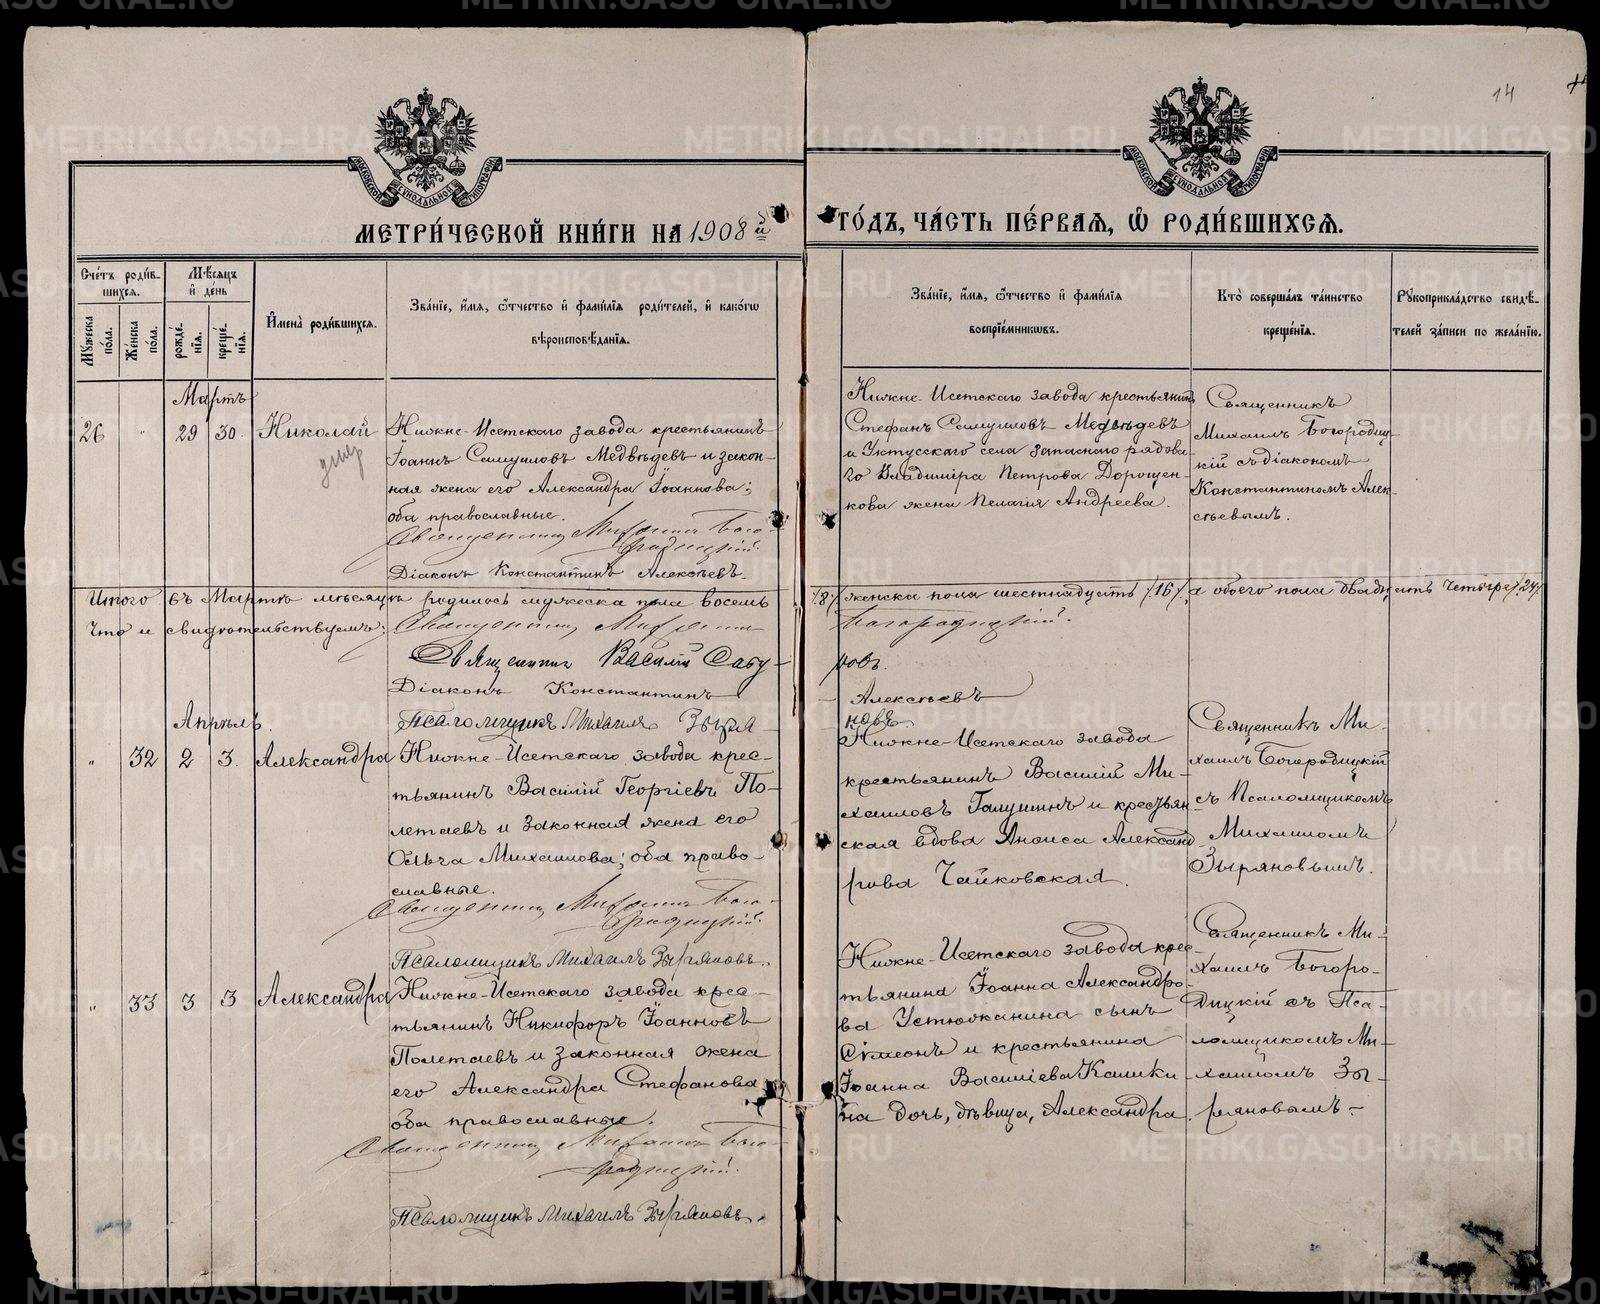 14
МЕТРИ́ЧЕСКОЙ КНИ́ГИ НА 1908й
ГО́ДЪ, ЧА́СТЬ ПЕ́РВАЯ, Ѡ РОДИ́ВШИХСЯ.
Сче́тъ роди́в-
шихся.
Мꙋ́жеска по́ла.
Же́нска по́ла.
Мѣ́сяцъ и де́нь
рожде́нїя.
креще́нїя.
И́мена̀ роди́вшихся.
Зва́нїе, и́мя, ѻ́тчество и фами́лїя роди́телей, и како́гѡ
вѣроисповѣ́данїя.
Зва́нїе, и́мя, ѻ́тчество и фами́лїя
воспрїе́мниковъ.
Кто̀ соверша́лъ та́инство
креще́нїя.
Рꙋкоприкла́дство свидѣ́-
телей за́писи по жела́нїю.
Мартъ
26 " 29 30. Николай
умер
Нижне-Исетскаго завода крестьянинъ
Іоаннъ Самуиловъ Медвѣдевъ и закон-
ная жена его Александра Іоаннова;
оба православные.
Священникъ Михаилъ Бого-
родицкій.
Діаконъ Константинъ Алексѣевъ.
Нижне-Исетскаго завода крестьянинъ
Стефанъ Самуиловъ Медвѣдевъ
и Уктусскаго села запаснаго рядова-
го Владиміра Петрова Дорощен-
кова жена Пелагія Андреева.
Священникъ
Михаилъ Богородиц-
кій съ діакономъ
Константиномъ Алек-
сѣевымъ.
Итого въ Мартѣ мѣсяцѣ родилось мужеска пола восемь /8/, женска пола шестнадцать /16/, а обоего пола двадцать четыре /24/
Что и свидѣтельствуемъ: Священникъ Михаилъ Богородицкій.
Священникъ Василій Сабу-
ровъ.
Діаконъ Константинъ Алексѣевъ
Псаломщикъ Михаилъ Зыря-
новъ
Апрѣль.
" 32 2 3. Александра
Нижне-Исетскаго завода крес-
тьянинъ Василій Георгіевъ По-
летаевъ и законная жена его
Ольга Михаилова; оба право-
славные.
Священникъ Михаилъ Бого-
родицкій.
Псаломщикъ Михаилъ Зыряновъ.
Нижне-Исетскаго завода
крестьянинъ Василій Ми-
хаиловъ Галушинъ и крестьян-
ская вдова Анѳиса Александ-
рова Чайковская.
Священникъ Ми-
хаилъ Богородицкій
съ Псаломщикомъ
Михаиломъ
Зыряновымъ.
" 33 3 3 Александра
Нижне-Исетскаго завода крес-
тьянинъ Никифоръ Іоанновъ
Полетаевъ и законная жена
его Александра Стефанова
Оба православные.
Священникъ Михаилъ Бого-
родицкій.
Псаломщикъ Михаилъ Зыряновъ.
Нижне-Исетскаго завода крес-
тьянина Іоанна Александро-
ва Устюжанина сынъ
Симеонъ и крестьянина
Іоанна Василіева Кашки-
на дочь, дѣвица, Александра.
Священникъ Ми-
хаилъ Богоро-
дицкій съ Пса-
ломщикомъ Ми-
хаиломъ Зы-
ряновымъ.
METRIKI.GASO-URAL.RU